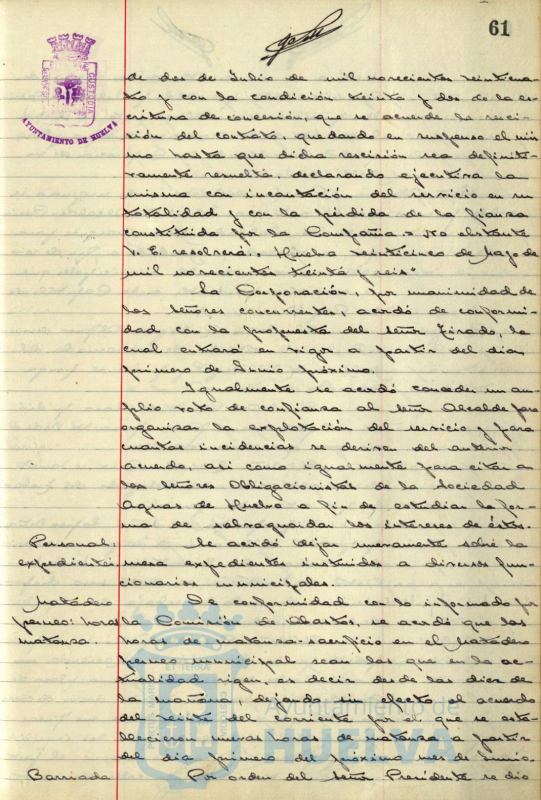 61
CUSTODIA
AYUNTAMIENTO DE HUELVA
de dos de Julio de mil novecientos veinticua-
tro y con la condición treinta y dos de la es-
critura de concesión, que se acuerde la resci-
sión del contrato, quedando en suspenso el mis-
mo hasta que dicha rescisión sea definiti-
vamente resuelta, declarando ejecutiva la
misma con incautación del servicio en su
totalidad y con la pérdida de la fianza
constituida por la Compañía.= No obstante
V. E. resolverá.= Huelva veinticinco de Mayo de
mil novecientos treinta y seis"
La Corporación, por unanimidad de
los señores concurrentes, acordó de conformi-
dad con la propuesta del señor Tirado, la
cual entrará en vigor a partir del dia
primero de Junio próximo.
Igualmente se acordó conceder un am-
plio voto de confianza al señor Alcalde para
organizar la explotación del servicio y para
cuantas incidencias se deriven del anterior
acuerdo, asi como igualmente para citar a
los señores Obligacionistas de la Sociedad
Aguas de Huelva a fin de estudiar la for-
ma de salvaguardar los intereses de éstos.
Personal: Se acordó dejar nuevamente sobre la
expedientes mesa expedientes instruidos a diversos fun-
cionarios municipales.
Matadero De conformidad con lo informado por
porcino: horas la Comisión de Abastos, se acordó que las
matanza. horas de matanza-sacrificio en el Matadero
porcino municipal sean las que en la ac-
tualidad rigen, es decir desde las diez de
la mañana, dejando sin efecto el acuerdo
del veinte del corriente por el que se esta-
blecieron nuevas horas de matanza a partir
del dia primero del próximo mes de Junio.
Barriada Por orden del señor Presidente se dio
Ayuntamiento de
HUELVA